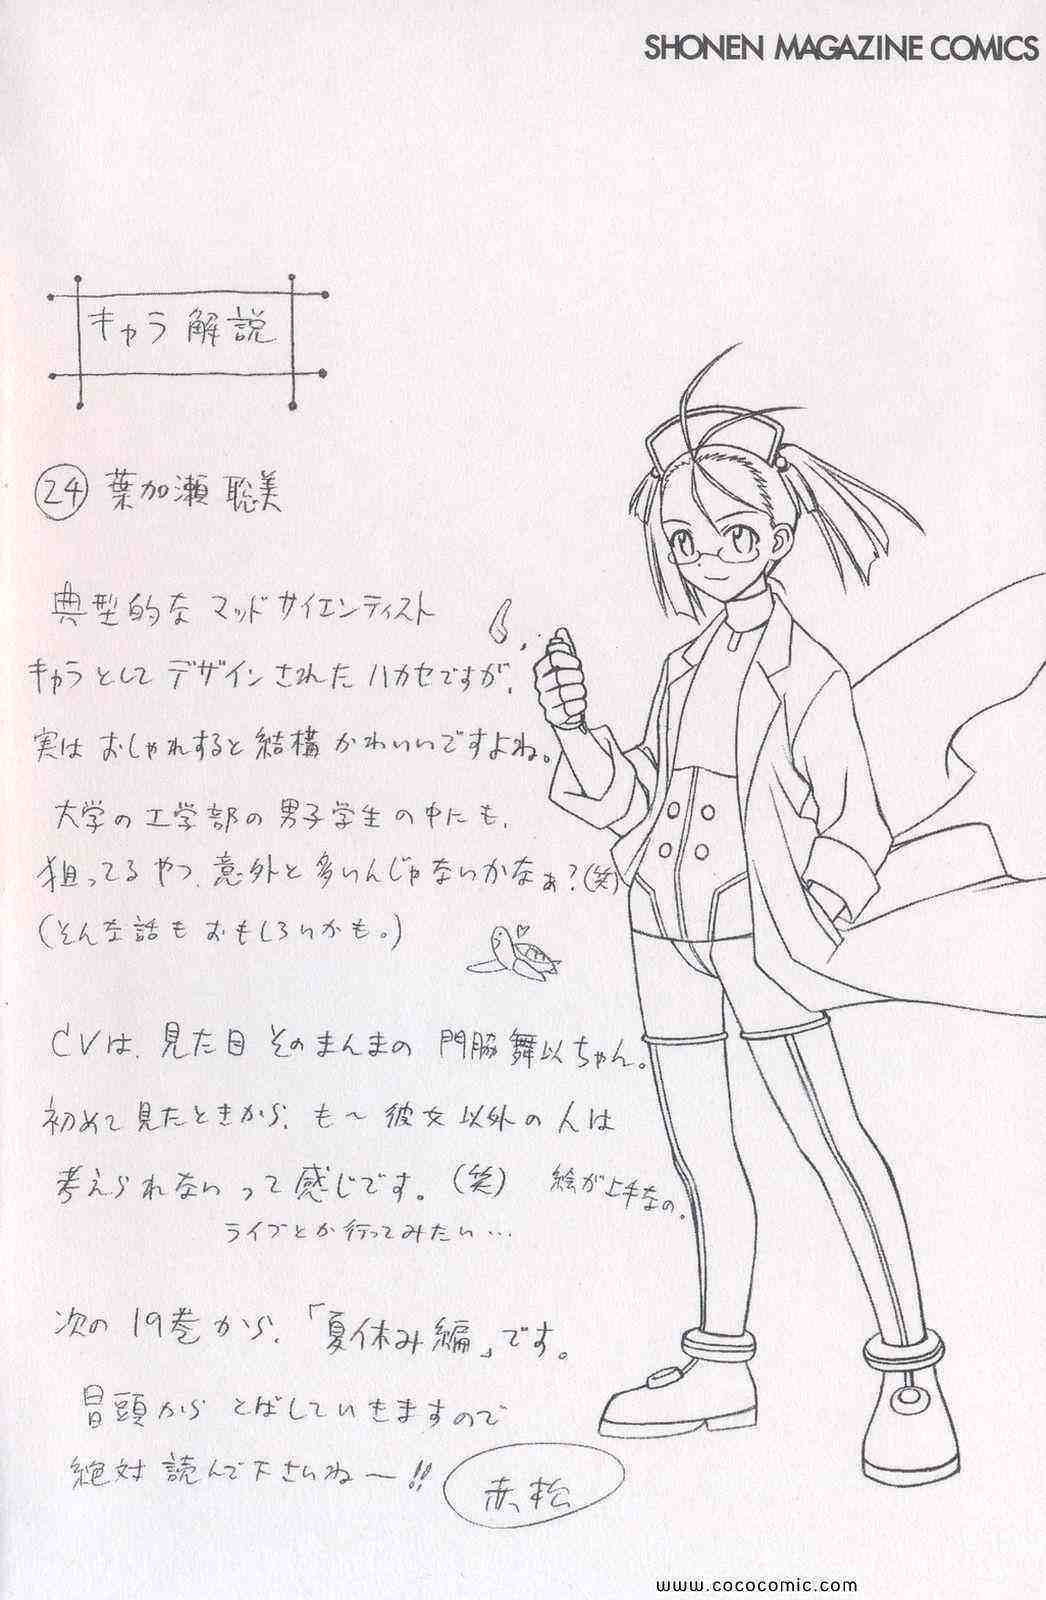 SHONEN MAGAZINE COMICS
キャラ解説
㉔ 葉加瀬 聡美
典型的な マッドサイエンティスト
キャラとして デザインされた ハカセですが、
実は おしゃれすると 結構 かわいいですよね。
大学の工学部の男子学生の中にも、
狙ってるやつ、意外と多いんじゃないかなぁ?(笑)
(そんな話もおもしろいかも。)
CVは、見た目 そのまんまの 門脇 舞以ちゃん。
初めて見たときから、も〜彼女以外の人は
考えられないって感じです。(笑) 絵が上手なの。
ライブとか行ってみたい…
次の 19巻から、「夏休み編」です。
冒頭から とばしていきますので
絶対 読んで下さいね〜!!
赤松
www.cococomic.com